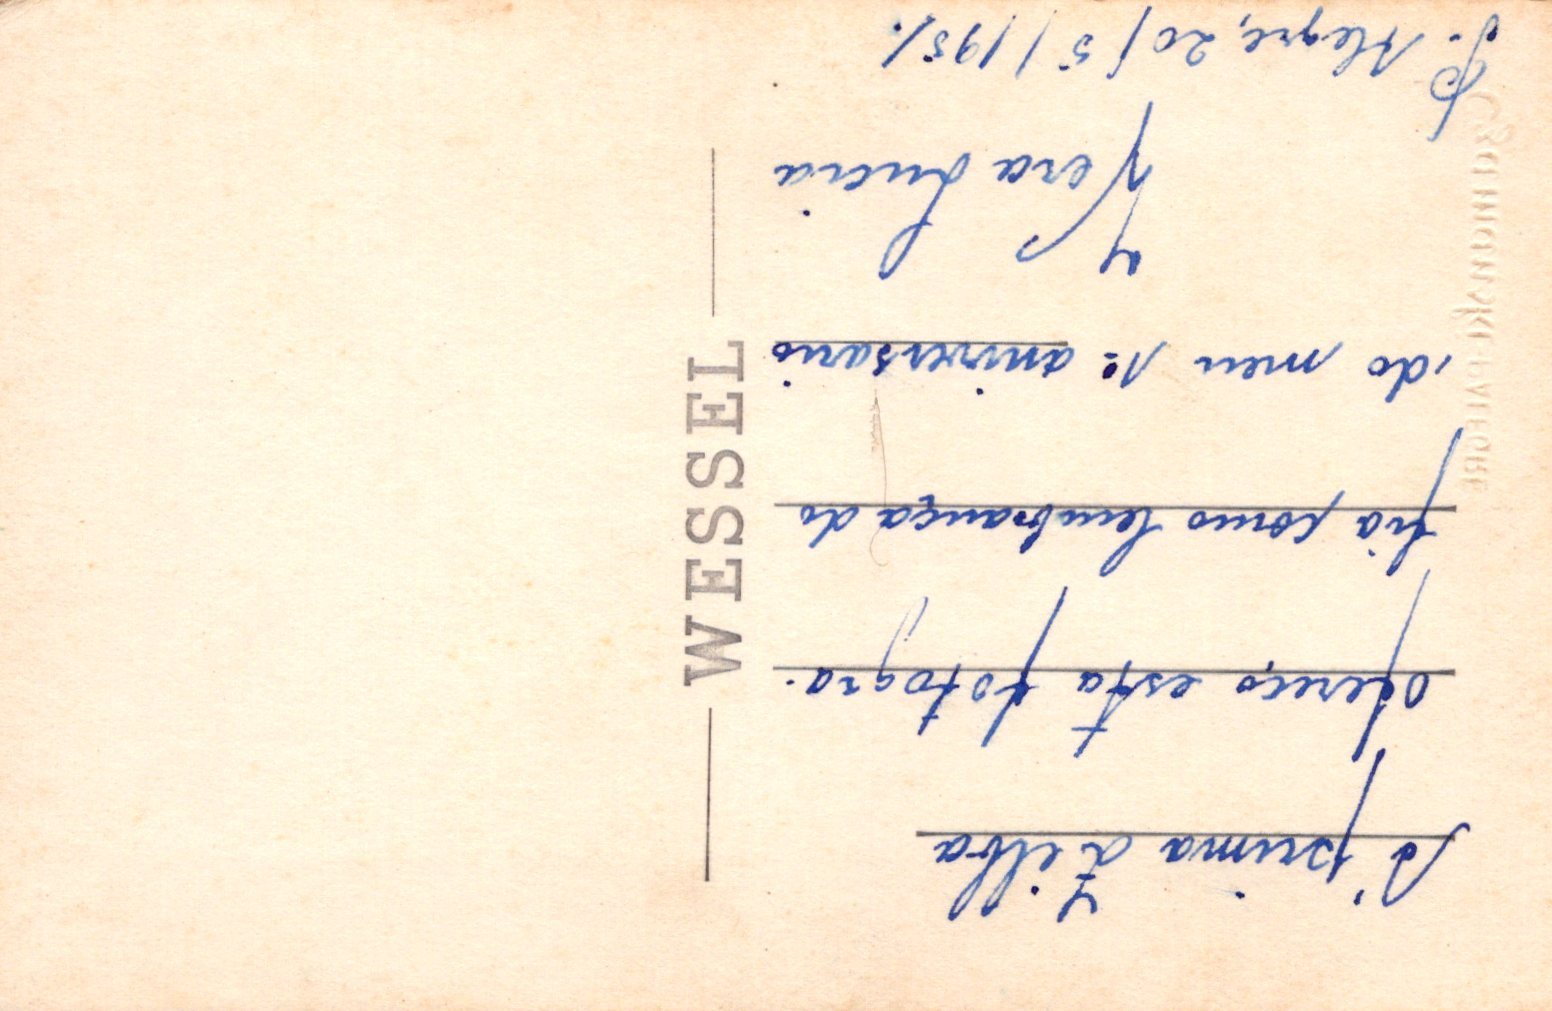 À prima Zilba
ofereço esta fotogra-
fia como lembrança do
do meu 1º aniversario
Vera Lucia
P. Alegre, 20/5/1951.
WESSEL